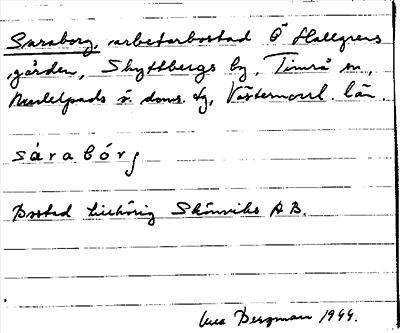 Saraborg, arbetarbostad Ö Hallgrens
gården, Skyttbergs by, Timrå sn,
Medelpads ö. doms. tg, Västernorrl. län.
sárabórj
Bostad tillhörig Skönviks AB.
Bergman 1944.